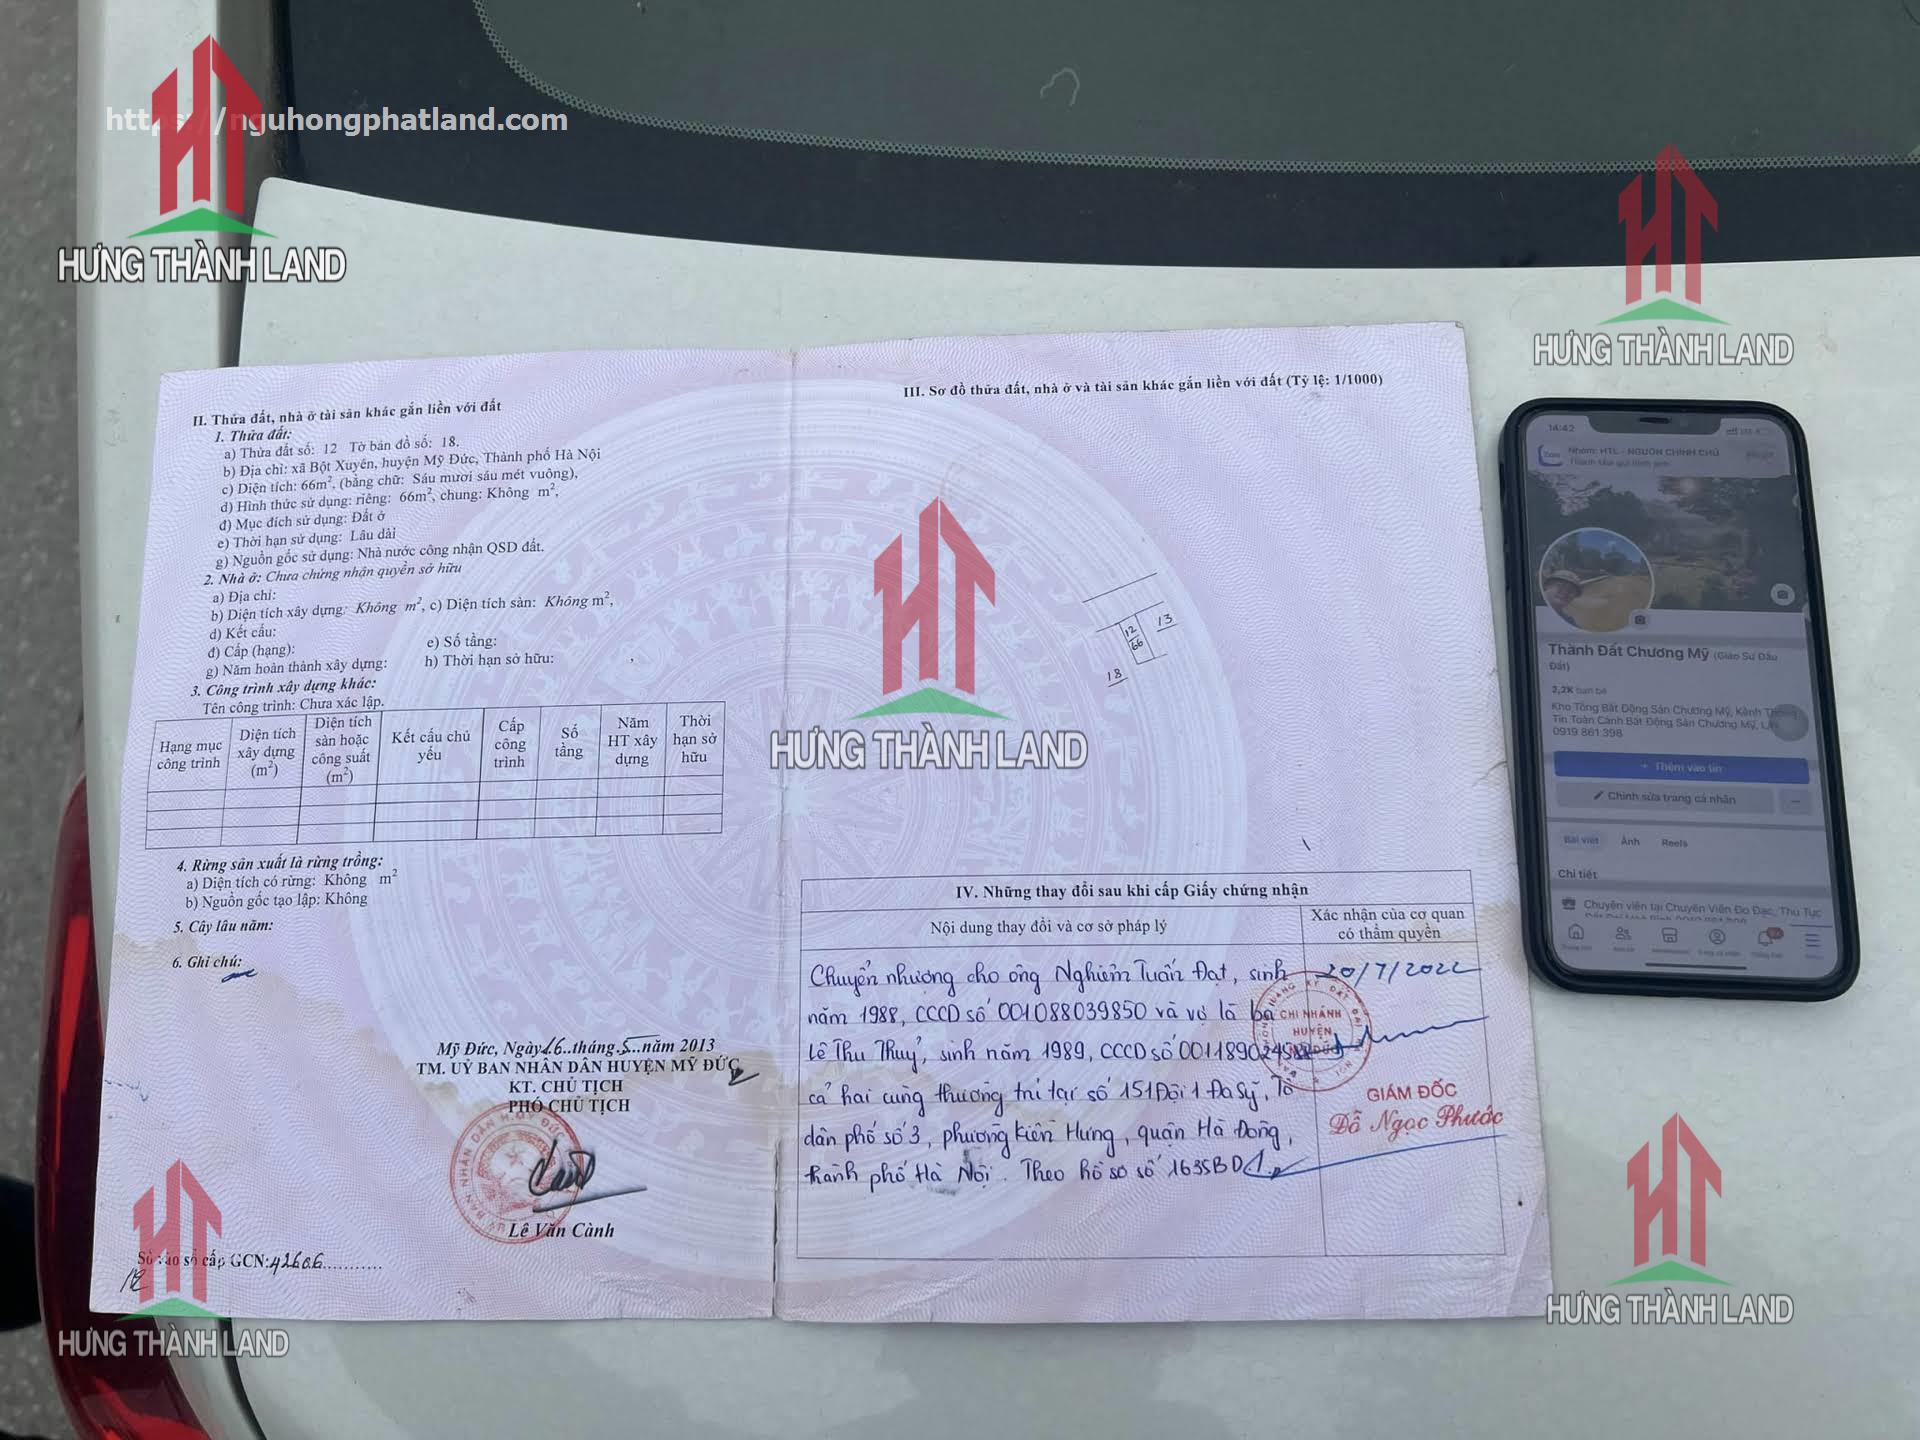 https://nguhongphatland.com
HƯNG THÀNH LAND
HƯNG THÀNH LAND
II. Thửa đất, nhà ở tài sản khác gắn liền với đất
1. Thửa đất:
a) Thửa đất số: 12 Tờ bản đồ số: 18.
b) Địa chỉ: xã Bột Xuyên, huyện Mỹ Đức, Thành phố Hà Nội
c) Diện tích: 66m², (bằng chữ: Sáu mươi sáu mét vuông),
d) Hình thức sử dụng: riêng: 66m², chung: Không m²,
đ) Mục đích sử dụng: Đất ở
e) Thời hạn sử dụng: Lâu dài
g) Nguồn gốc sử dụng: Nhà nước công nhận QSD đất.
2. Nhà ở: Chưa chứng nhận quyền sở hữu
a) Địa chỉ:
b) Diện tích xây dựng: Không m², c) Diện tích sàn: Không m²,
d) Kết cấu:
e) Số tầng:
đ) Cấp (hạng):
g) Năm hoàn thành xây dựng: h) Thời hạn sở hữu:
3. Công trình xây dựng khác:
Tên công trình: Chưa xác lập.
Hạng mục công trình
Diện tích xây dựng (m²)
Diện tích sàn hoặc công suất (m²)
Kết cấu chủ yếu
Cấp công trình
Số tầng
Năm HT xây dựng
Thời hạn sở hữu
4. Rừng sản xuất là rừng trồng:
a) Diện tích có rừng: Không m²
b) Nguồn gốc tạo lập: Không
5. Cây lâu năm:
6. Ghi chú:
Mỹ Đức, Ngày 16 tháng 5 năm 2013
TM. UỶ BAN NHÂN DÂN HUYỆN MỸ ĐỨC
KT. CHỦ TỊCH
PHÓ CHỦ TỊCH
Lê Văn Cành
Số vào sổ cấp GCN: 42606
HƯNG THÀNH LAND
III. Sơ đồ thửa đất, nhà ở và tài sản khác gắn liền với đất (Tỷ lệ: 1/1000)
12
66
13
18
HƯNG THÀNH LAND
IV. Những thay đổi sau khi cấp Giấy chứng nhận
Nội dung thay đổi và cơ sở pháp lý
Xác nhận của cơ quan có thẩm quyền
Chuyển nhượng cho ông Nghiêm Tuấn Đạt, sinh
năm 1988, CCCD số 001088039850 và vợ là bà
Lê Thu Thuỷ, sinh năm 1989, CCCD số
cả hai cùng thường trú tại số 151 Đội 1 Đa Sỹ, Tổ
dân phố số 3, phường Kiến Hưng, quận Hà Đông,
thành phố Hà Nội. Theo hồ sơ số
20/7/2022
CHI NHÁNH
HUYỆN
MỸ ĐỨC
GIÁM ĐỐC
Đỗ Ngọc Phước
14:42
Nhóm: HTL - NGUỒN CHÍNH CHỦ
Thành Đất Chương Mỹ (Giáo Sư Đầu
Đất)
2,2K bạn bè
Kho Tổng Bất Động Sản Chương Mỹ, Kênh Thông
Tin Toàn Cảnh Bất Động Sản Chương Mỹ,
0919 861 398
+ Thêm vào tin
Chỉnh sửa trang cá nhân
Bài viết Ảnh Reels
Chi tiết
Chuyên viên tại Chuyên Viên Đo Đạc, Thủ Tục
HƯNG THÀNH LAND